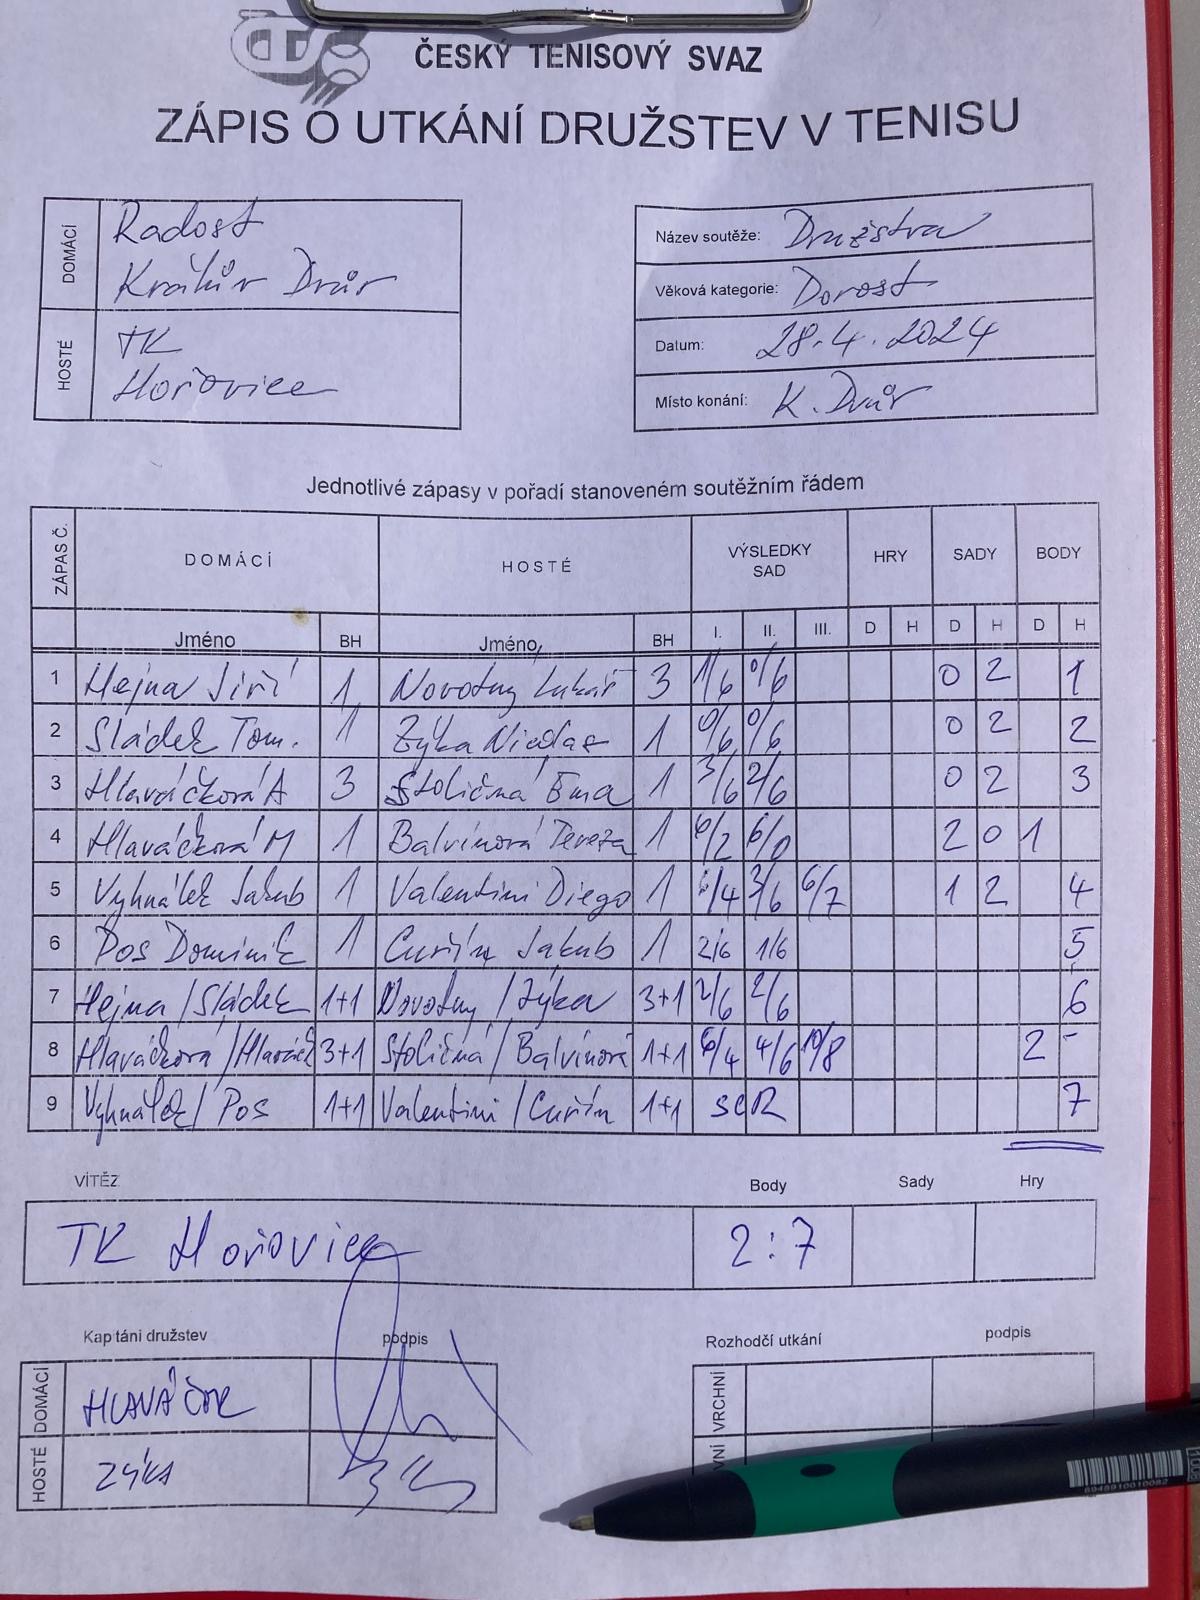 ČESKÝ TENISOVÝ SVAZ
ZÁPIS O UTKÁNÍ DRUŽSTEV V TENISU
DOMÁCÍ Radost
Králův Dvůr
HOSTÉ TK
Hořovice
Název soutěže: Družstva
Věková kategorie: Dorost
Datum: 28.4.2024
Místo konání: K. Dvůr
Jednotlivé zápasy v pořadí stanoveném soutěžním řádem
ZÁPAS Č. DOMÁCÍ HOSTÉ VÝSLEDKY SAD HRY SADY BODY
Jméno BH Jméno BH I. II. III. D H D H D H
1 Hejna Jiří 1 Novotny Lukáš 3 1/6 0/6 0 2 1
2 Sládek Tom. 1 Zýka Nicolas 1 0/6 0/6 0 2 2
3 Hlaváčková A 3 Stoličná Ema 1 3/6 2/6 0 2 3
4 Hlaváčková M 1 Balvínová Tereza 1 6/2 6/0 2 0 1
5 Vyhnálek Jakub 1 Valentini Diego 1 6/4 3/6 6/7 1 2 4
6 Pos Dominik 1 Cuřín Jakub 1 2/6 1/6 5
7 Hejna/Sládek 1+1 Novotny/Zýka 3+1 2/6 2/6 6
8 Hlaváčková/ 3+1 Stoličná/Balvínová 1+1 6/4 4/6 10/8 2 -
9 Vyhnálek/Pos 1+1 Valentini/Cuřín 1+1 SCR 7
VÍTĚZ Body Sady Hry
TK Hořovice 2:7
Kapitáni družstev podpis
DOMÁCÍ HLAVÁČEK
HOSTÉ ZÝKA
Rozhodčí utkání podpis
VRCHNÍ
8948910010082